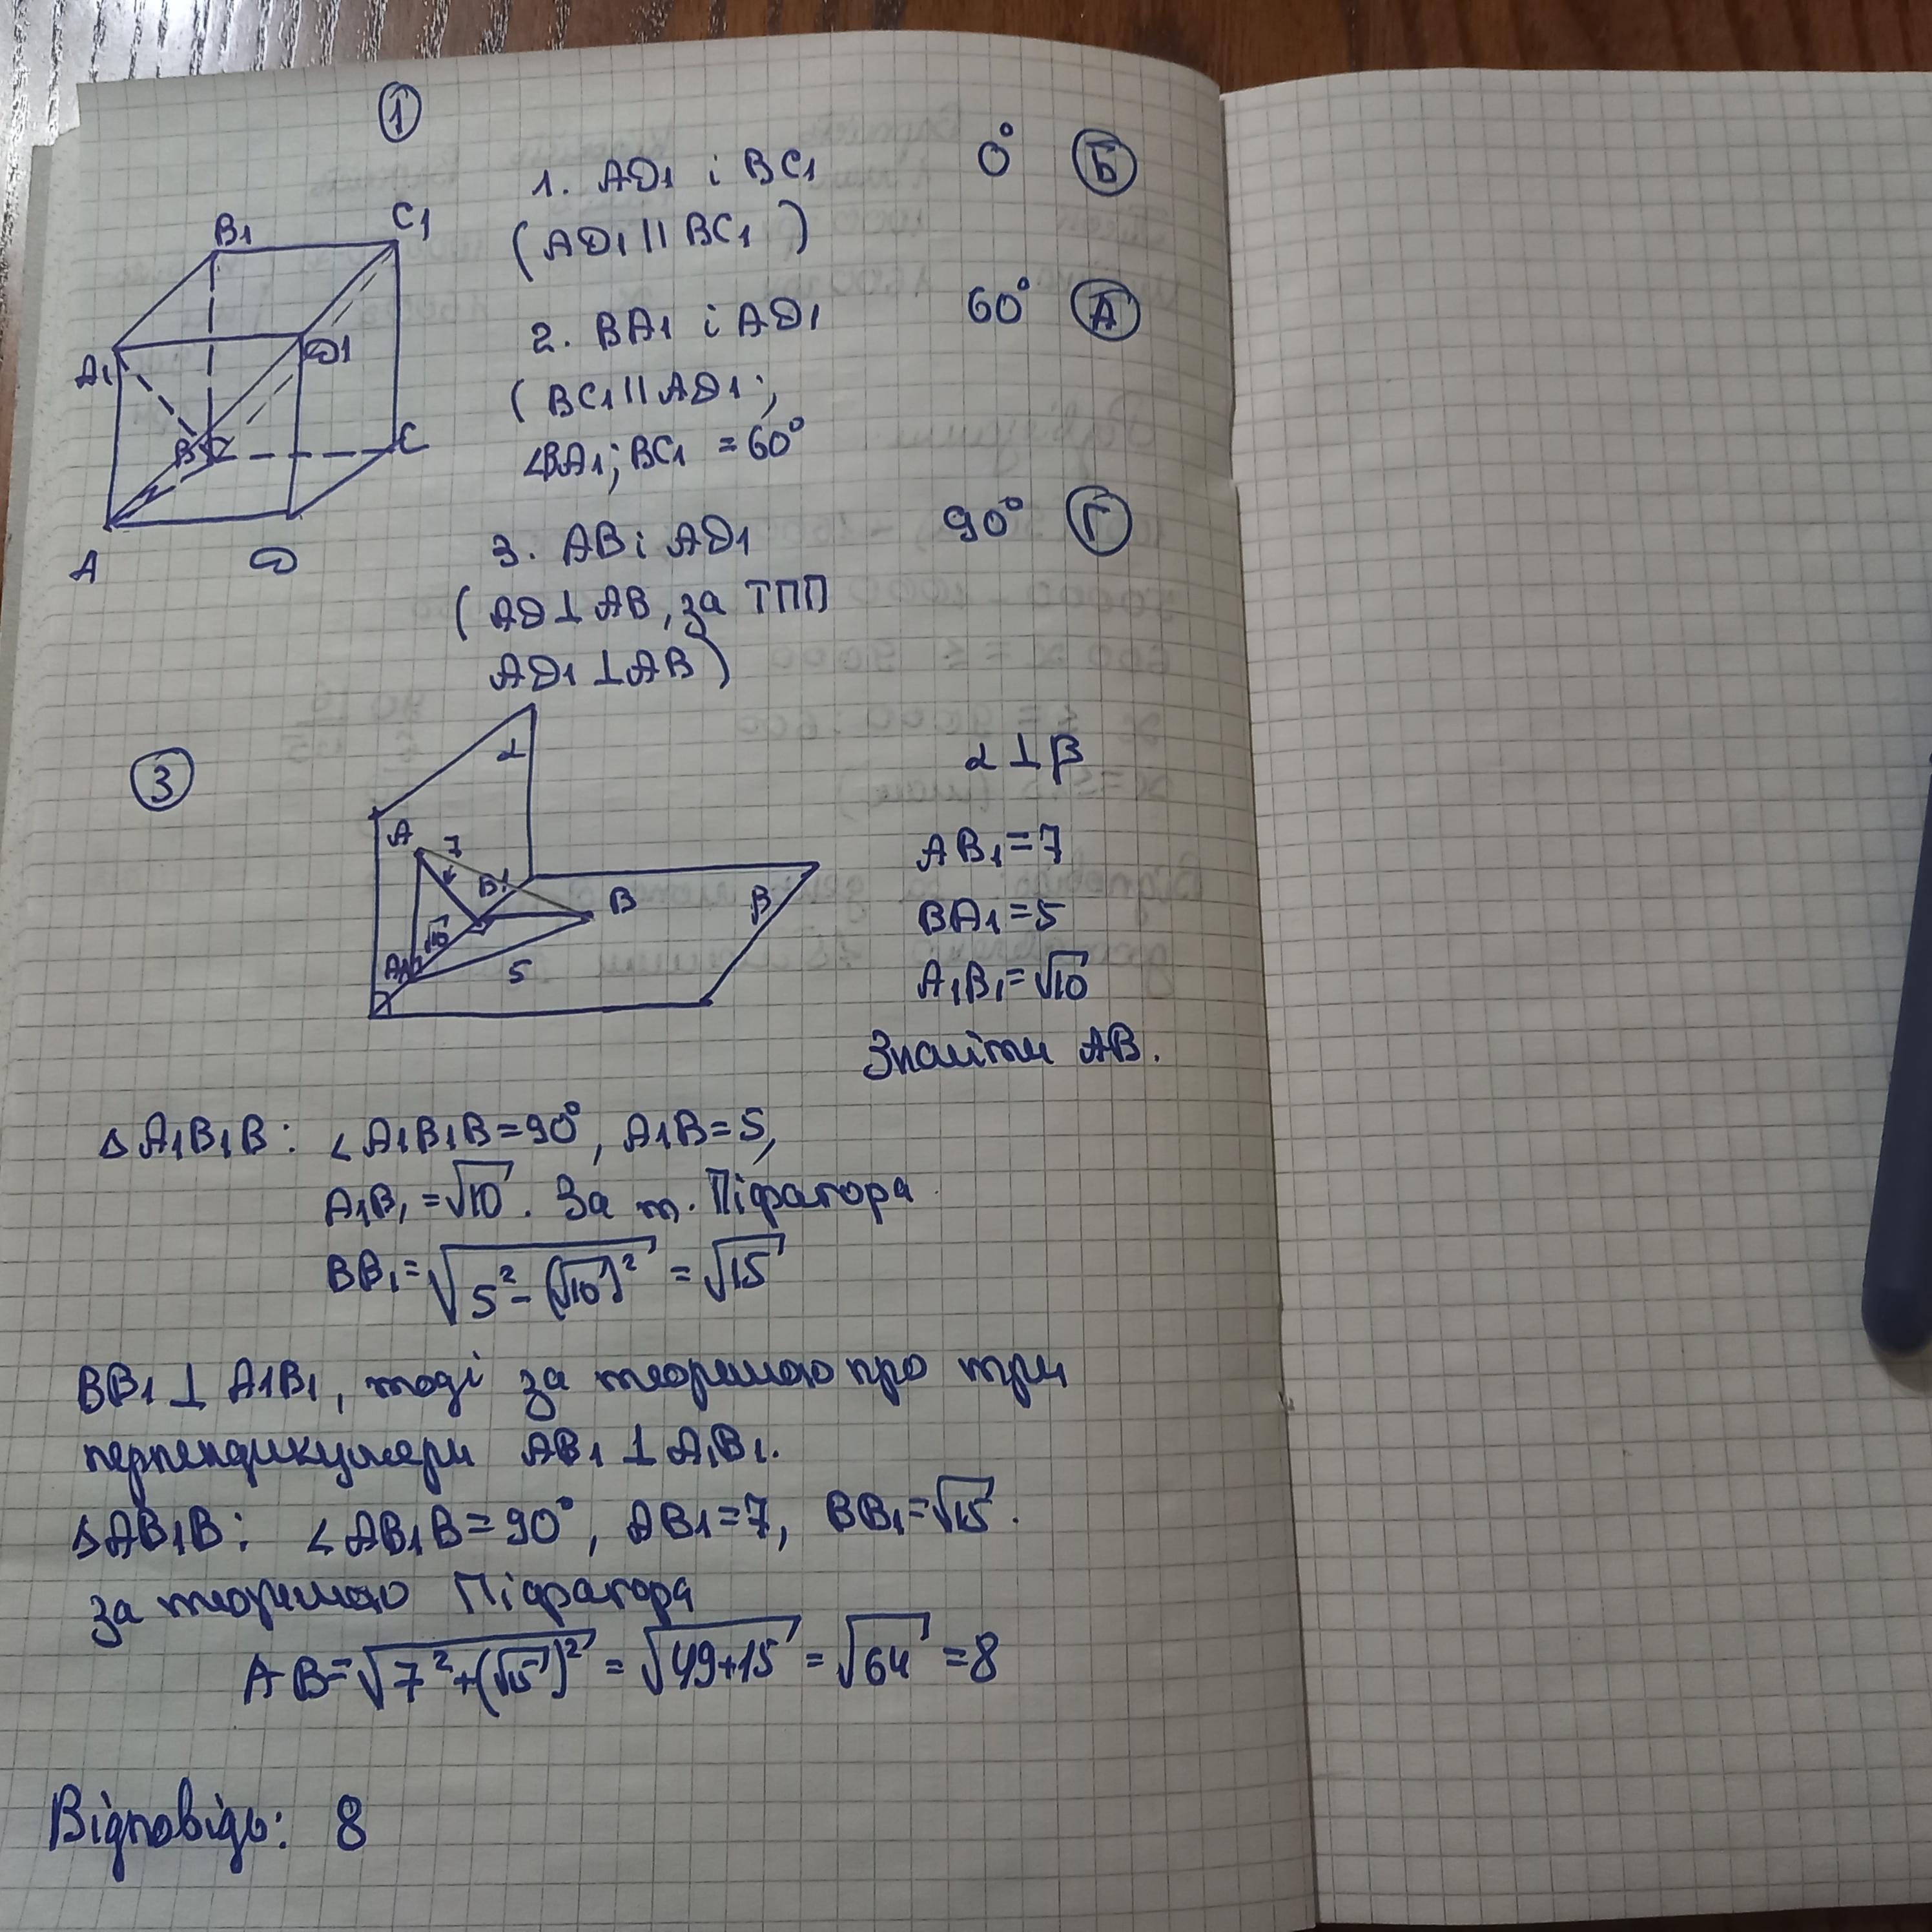 1
1. AD1 і BC1 0° Б
(AD1 || BC1)
2. BA1 і AD1 60° А
(BC1 || AD1;
∠BA1; BC1 = 60°
3. AB і AD1 90° Г
(AD ⊥ AB, за ТПП
AD1 ⊥ AB)
B1 C1
A1 D1
B C
A D
3
α
A 7
B1 B β
√10
A1 5
α ⊥ β
AB1 = 7
BA1 = 5
A1B1 = √10
Знайти AB.
Δ A1B1B: ∠A1B1B = 90°, A1B = 5,
A1B1 = √10. За т. Піфагора
BB1 = √(5² - (√10)²) = √15
BB1 ⊥ A1B1, тоді за теоремою про три
перпендикуляри AB1 ⊥ A1B1.
Δ AB1B: ∠AB1B = 90°, AB1 = 7, BB1 = √15.
за теоремою Піфагора
AB = √(7² + (√15)²) = √(49+15) = √64 = 8
Відповідь: 8